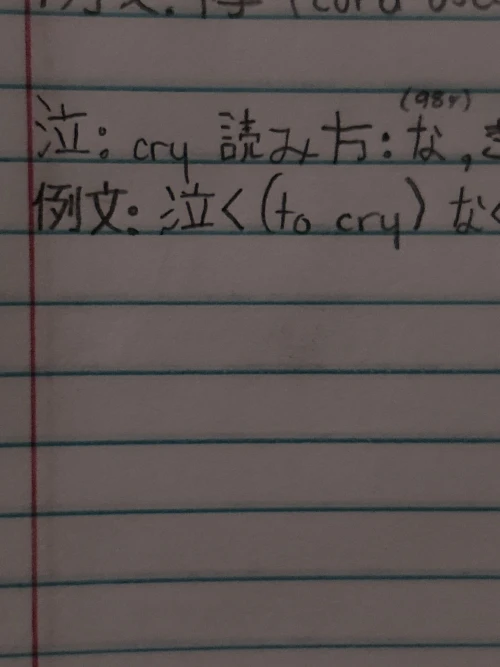 (98%)
泣: cry 読み方: な,
例文: 泣く (to cry) なく